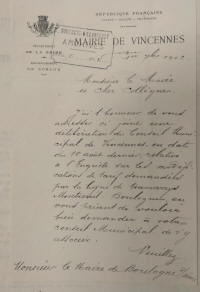 RÉPUBLIQUE FRANÇAISE
LIBERTÉ - ÉGALITÉ - FRATERNITÉ
MAIRIE DE VINCENNES
DÉPARTEMENT
DE LA SEINE
1902
Monsieur le Maire
et cher Collègue
J'ai l'honneur de vous
adresser ci joint une
délibération du Conseil Muni
cipal de Vincennes en date
du 10 août dernier, relative
à l'Enquête sur les modifi
cations de tarif demandées
par la ligne de tramways
Montreuil Boulogne en
vous priant de vouloir
bien demander à votre
conseil Municipal de s'y
associer.
Veuillez
Monsieur le Maire de Boulogne